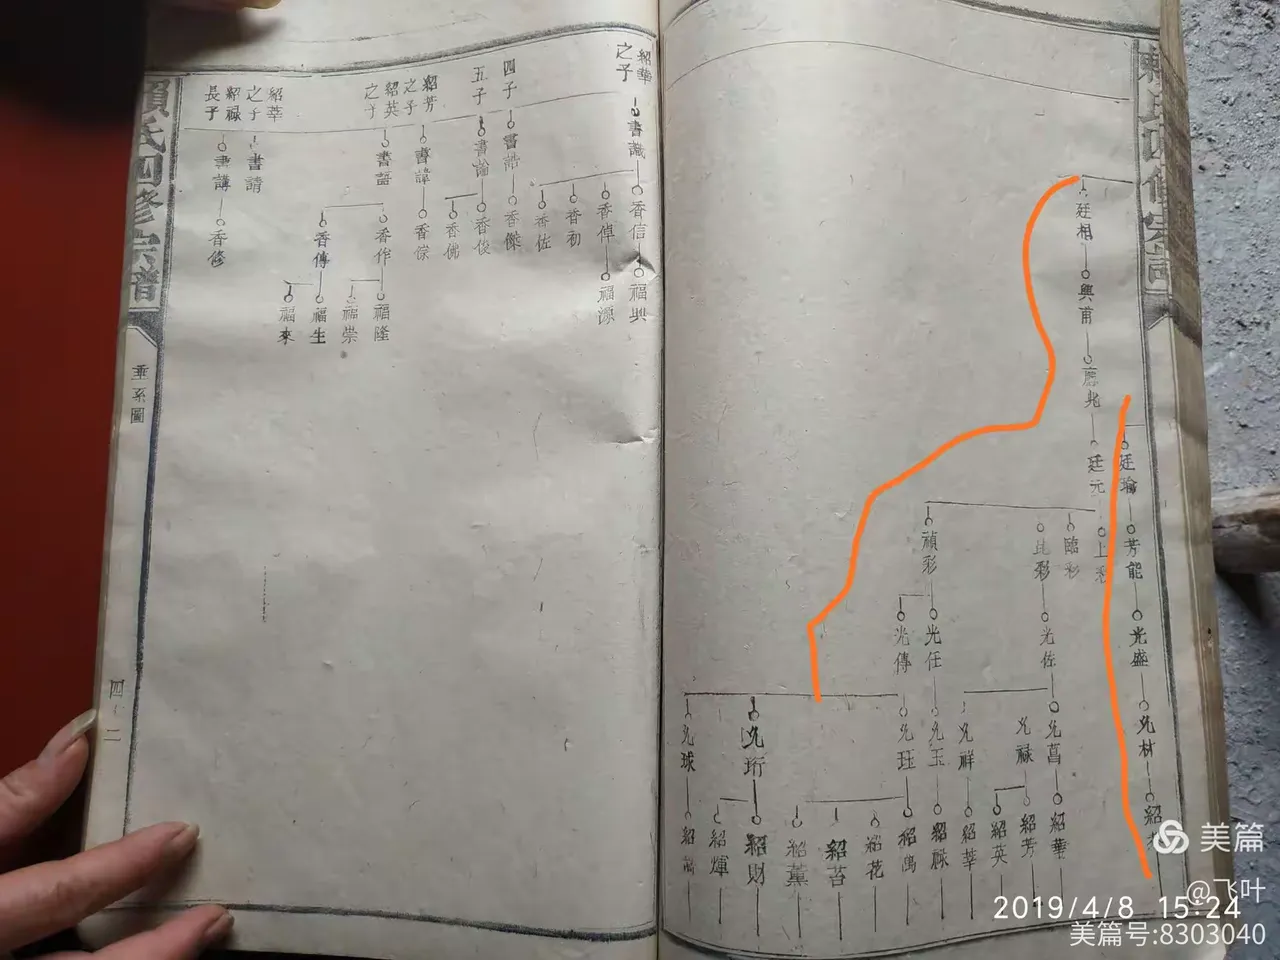 廷瑜
芳能
光盛
允材
紹
廷相
興甫
應兆
廷元
上彩
臨彩
昆彩
光佐
允菖
紹華
允祿
紹芳
紹英
允祥
紹莘
禎彩
光任
允玉
紹祿
光傳
允珏
紹萬
紹花
紹苔
紹薰
允珩
紹財
紹輝
允球
紹
賴氏四修宗譜
紹華之子
書識
香信
福興
香倬
福源
香初
香佐
四子
書誥
香傑
五子
書論
香俊
香佛
紹芳之子
書諱
香倧
紹英之子
書語
香作
福隆
福崇
香傳
福生
福來
紹莘之子
書請
紹祿長子
書講
香修
賴氏四修宗譜
垂絲圖
四十二
美篇
@飞叶
2019/4/8 15:24
美篇号:8303040